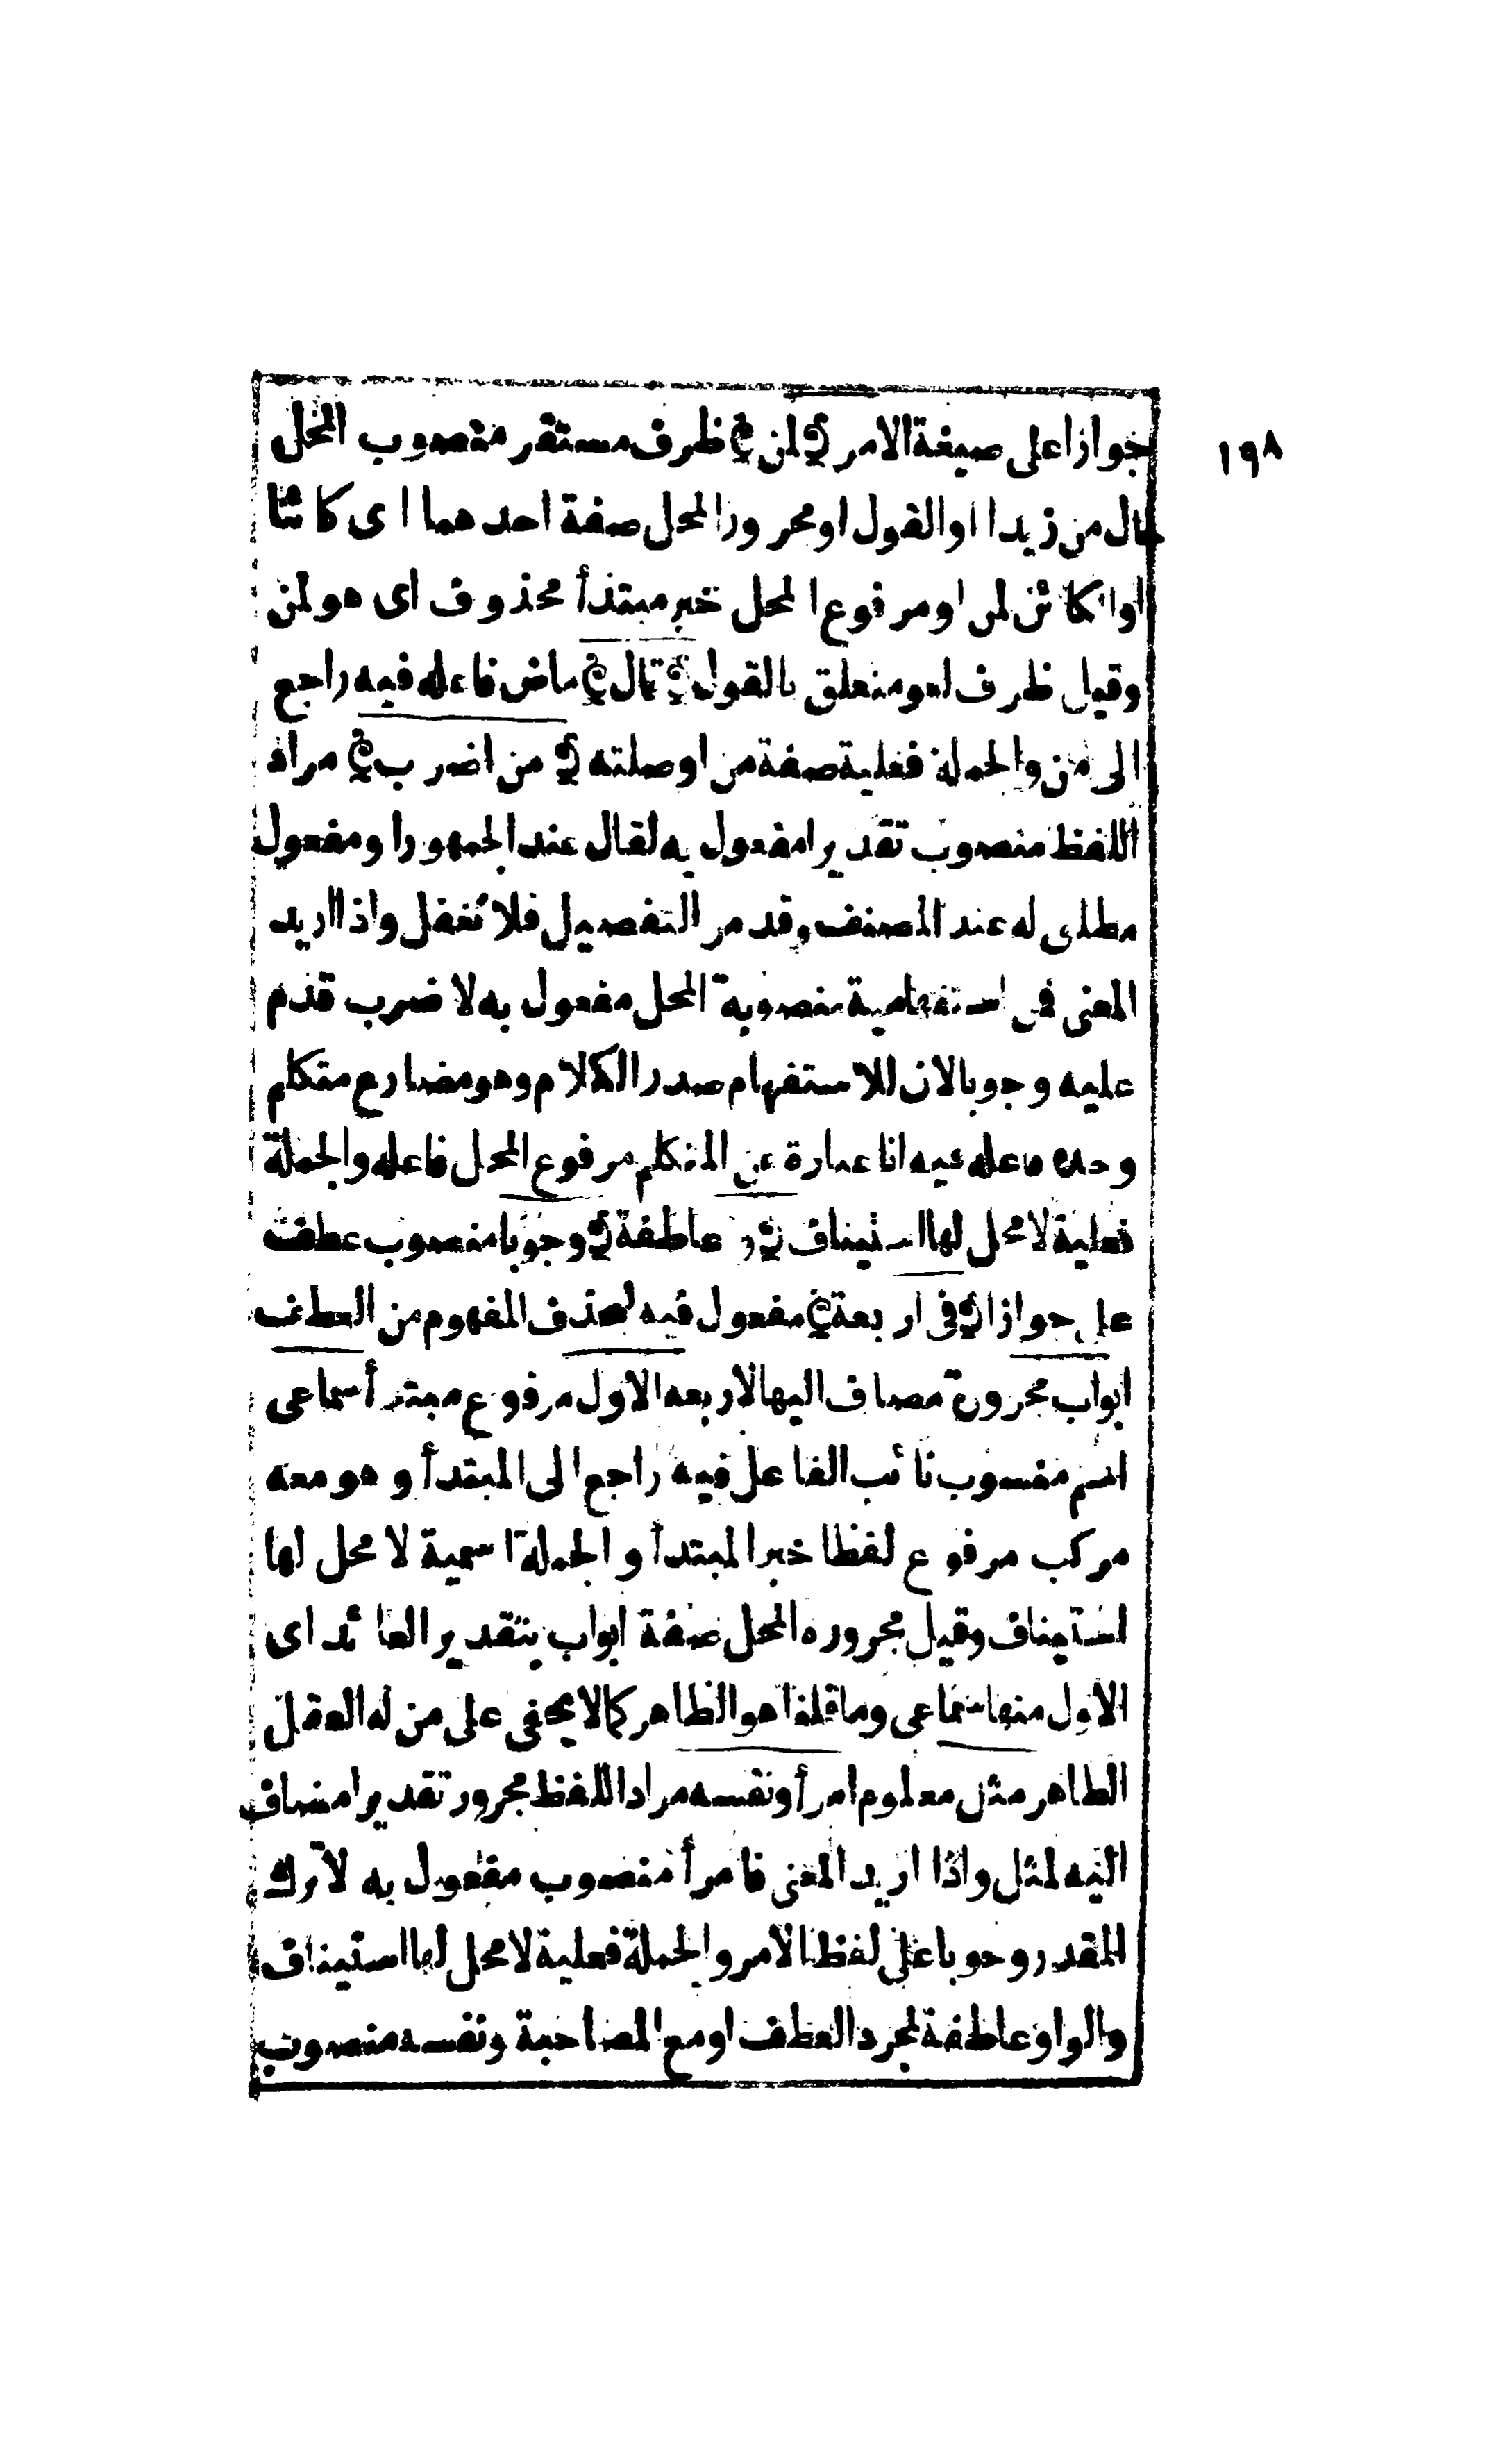 ١٩٨
جوازا على صيغة الامر ﴿ لمن ﴾ ظرف مستقر منصوب المحل
حال من زيدا او القول او مجرور المحل صفة احدهما اى كائنا
او الكائن لمن او مرفوع المحل خبر مبتدأ محذوف اى هو لمن
وقيل ظرف لغو متعلق بالقول ﴿ قال ﴾ ماض فاعله فيه راجع
الى من والجملة فعلية صفة من او صلته ﴿ من اضرب ﴾ مراد
اللفظ منصوب تقديرا مفعول به لقال عند الجمهور او مفعول
مطلق له عند المصنف وقد مر التفصيل فلا تغفل واذا اريد
المعنى فمن استفهامية منصوبة المحل مفعول به لاضرب قدم
عليه وجوبا لان للاستفهام صدر الكلام وهو مضارع متكلم
وحده فاعله فيه انا عبارة عن المتكلم مرفوع المحل فاعله والجملة
فعلية لا محل لها استيناف ﴿ و ﴾ عاطفة ﴿ وجوبا منصوب عطف
على جوازا ﴿ فى اربعة ﴾ مفعول فيه لحذف المفهوم من العطف
ابواب مجرورة مضاف اليها لاربعه الاول مرفوع مبتدأ سماعى
اسم منسوب نائب الفاعل فيه راجع الى المبتدأ و هو معه
مركب مرفوع لفظا خبر المبتدأ و الجملة اسمية لا محل لها
استيناف وقيل مجروره المحل صفة ابواب بتقدير العائد اى
الاول منها سماعى وما قلنا هو الظاهر كما لا يخفى على من له العقل
الظاهر مثل معلوم امرأ ونفسه مراد اللفظ مجرور تقديرا مضاف
اليه لمثل واذا اريد المعنى فامرأ منصوب مفعول به لاترك
المقدر وجوبا على لفظ الامر والجملة فعلية لا محل لها استيناف
والواو عاطفة لمجرد العطف او مع المصاحبة ونفسه منصوب